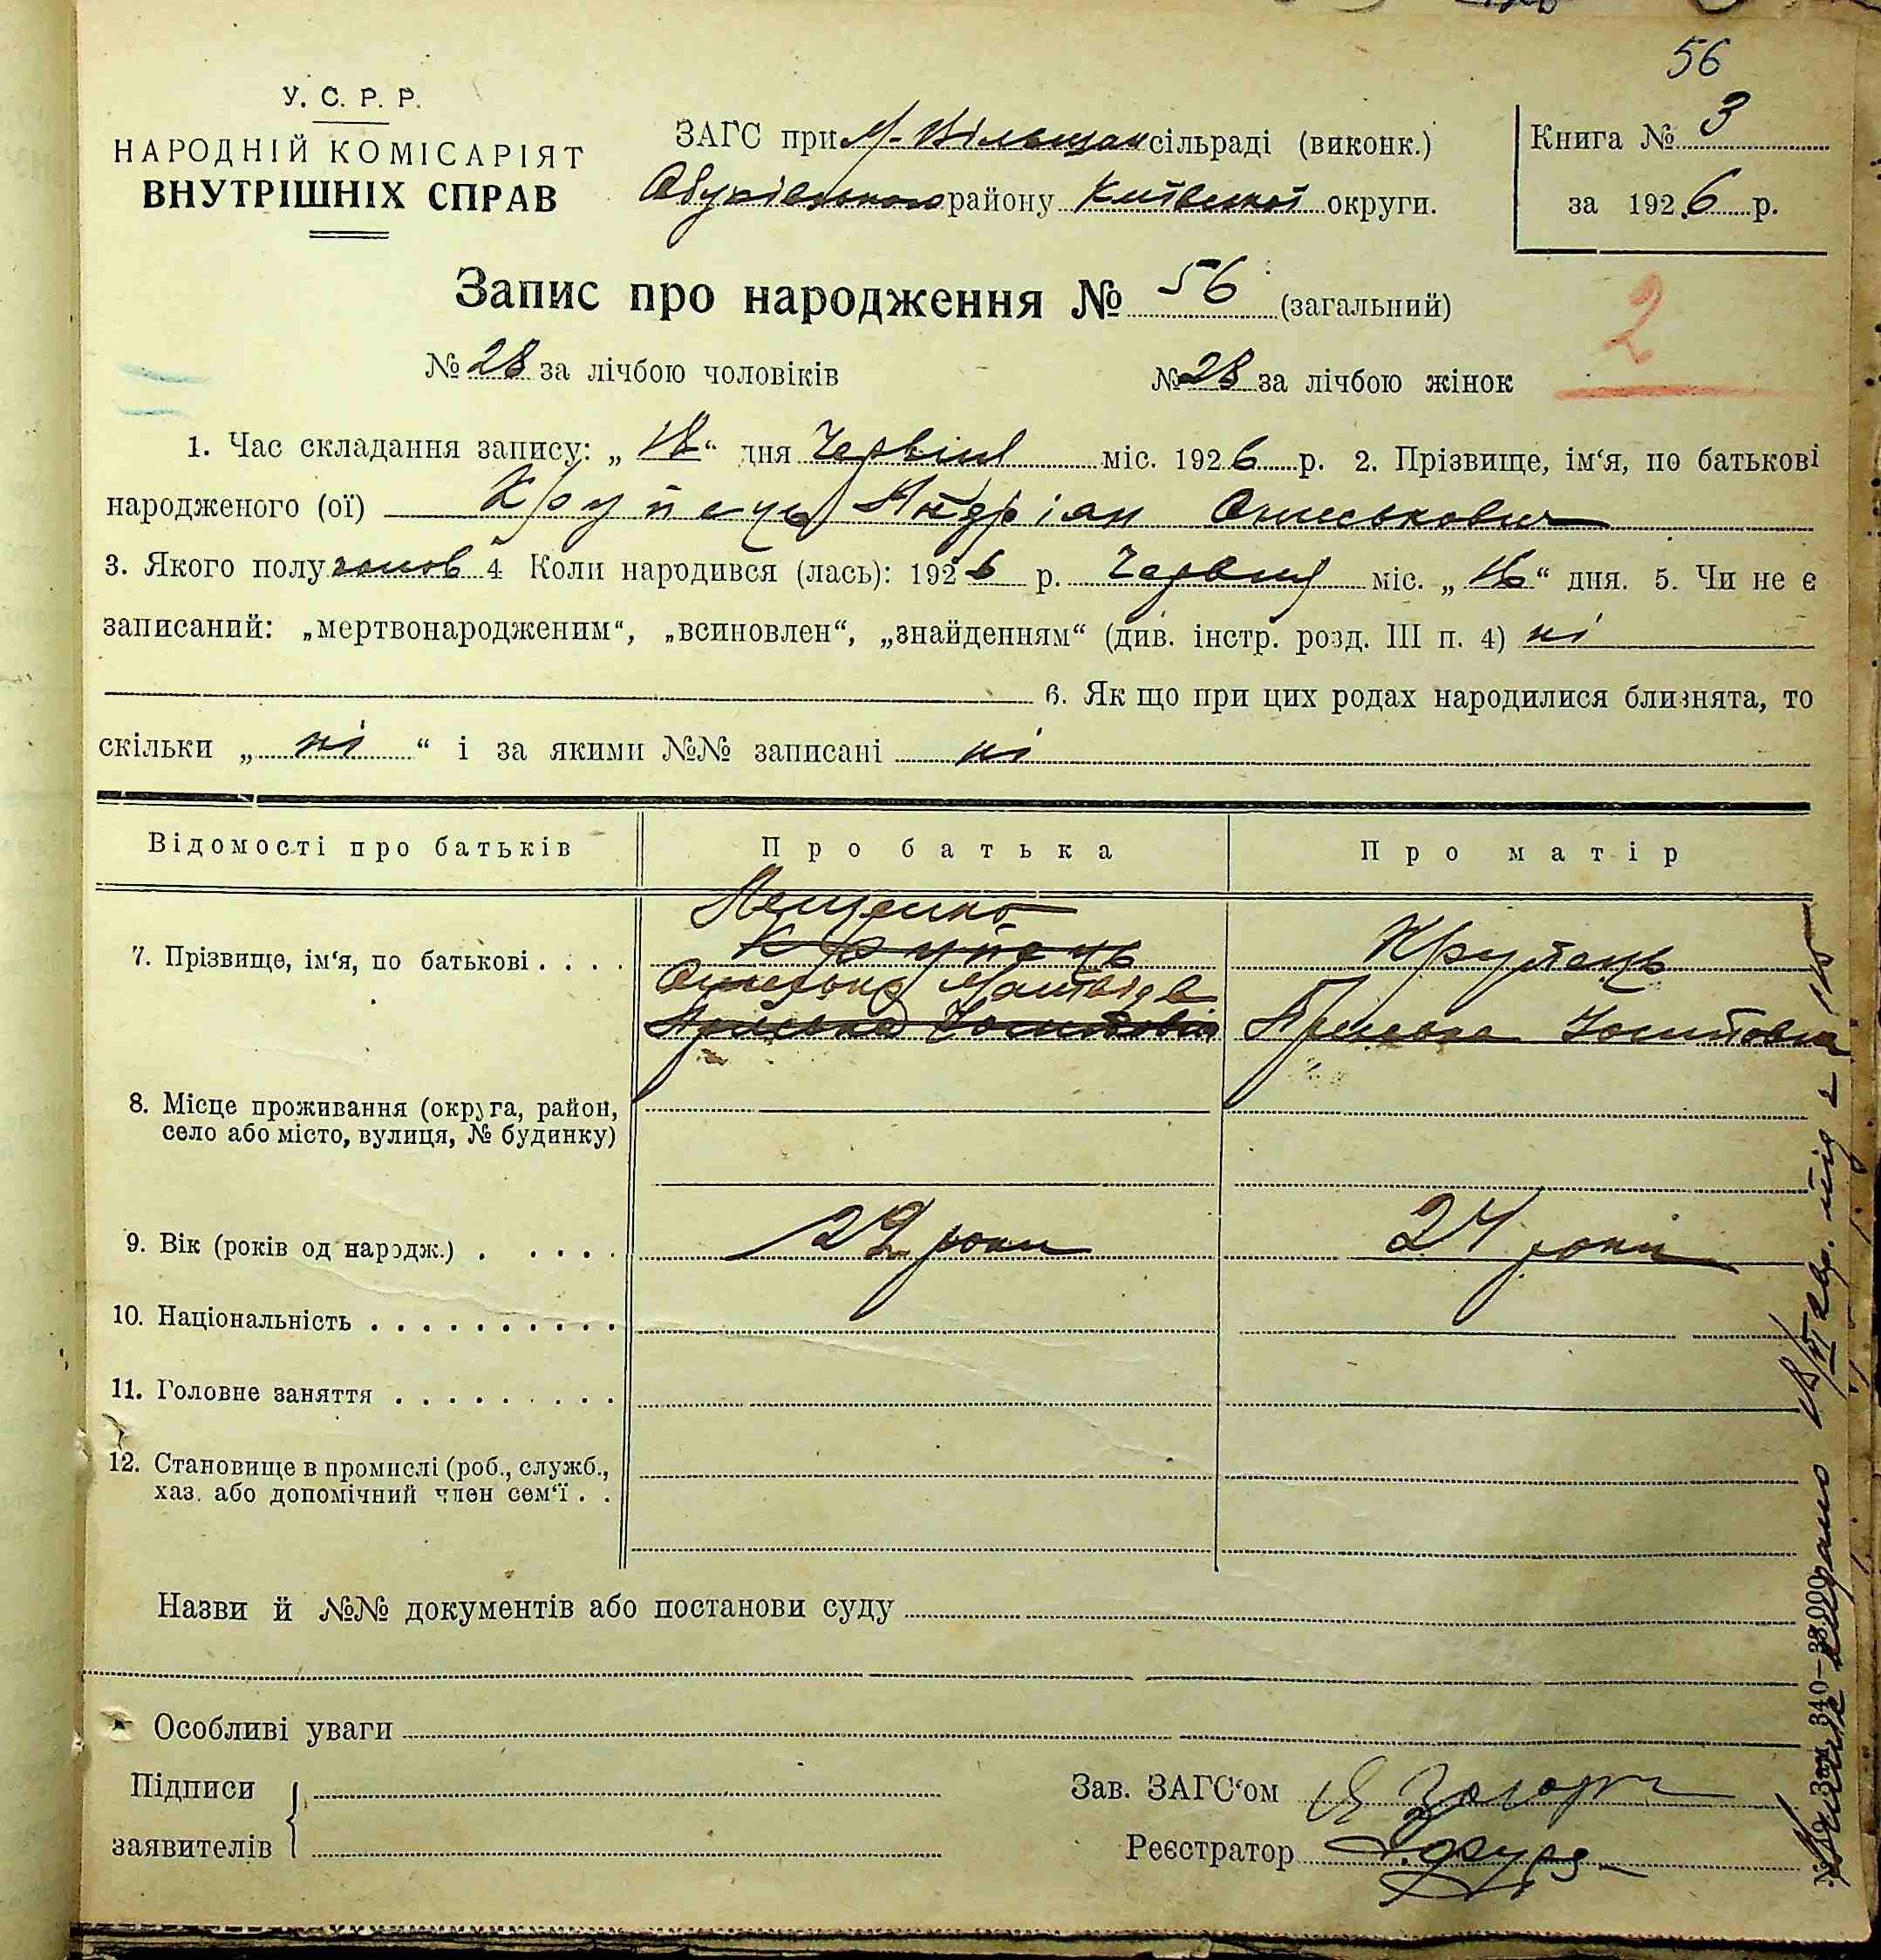 56
У. С. Р. Р.
НАРОДНІЙ КОМІСАРІЯТ
ВНУТРІШНІХ СПРАВ
ЗАГС при М-Вільшан сільраді (виконк.)
Обухівського району Київської округи.
Книга № 3
за 1926 р.
Запис про народження № 56 (загальний)
2
№ 28 за лічбою чоловіків
№ 28 за лічбою жінок
1. Час складання запису: „ 18 “ дня Червіня міс. 1926 р. 2. Прізвище, ім‘я, по батькові
народженого (ої) Крупець Андріан
3. Якого полу чолов 4 Коли народився (лась): 1926 р. Червня міс. „ 16 “ дня. 5. Чи не є
записаний: „мертвонародженим“, „всиновлен“, „знайденням“ (див. інстр. розд. III п. 4) ні
6. Як що при цих родах народилися близнята, то
скільки „ ні “ і за якими №№ записані ні
Відомості про батьків
Про батька
Про матір
7. Прізвище, ім‘я, по батькові . . . .
Лещенко
Крупець
Крупець
8. Місце проживання (округа, район,
село або місто, вулиця, № будинку)
9. Вік (років од народж.) . . . . .
29 роки
24 роки
10. Національність . . . . . . . . . .
11. Головне заняття . . . . . . . . .
12. Становище в промислі (роб., служб.,
хаз. або допомічний член сем‘ї . .
Назви й №№ документів або постанови суду
Особливі уваги
Підписи
заявителів
Зав. ЗАГС‘ом
Реєстратор
Зам. 340—38.000